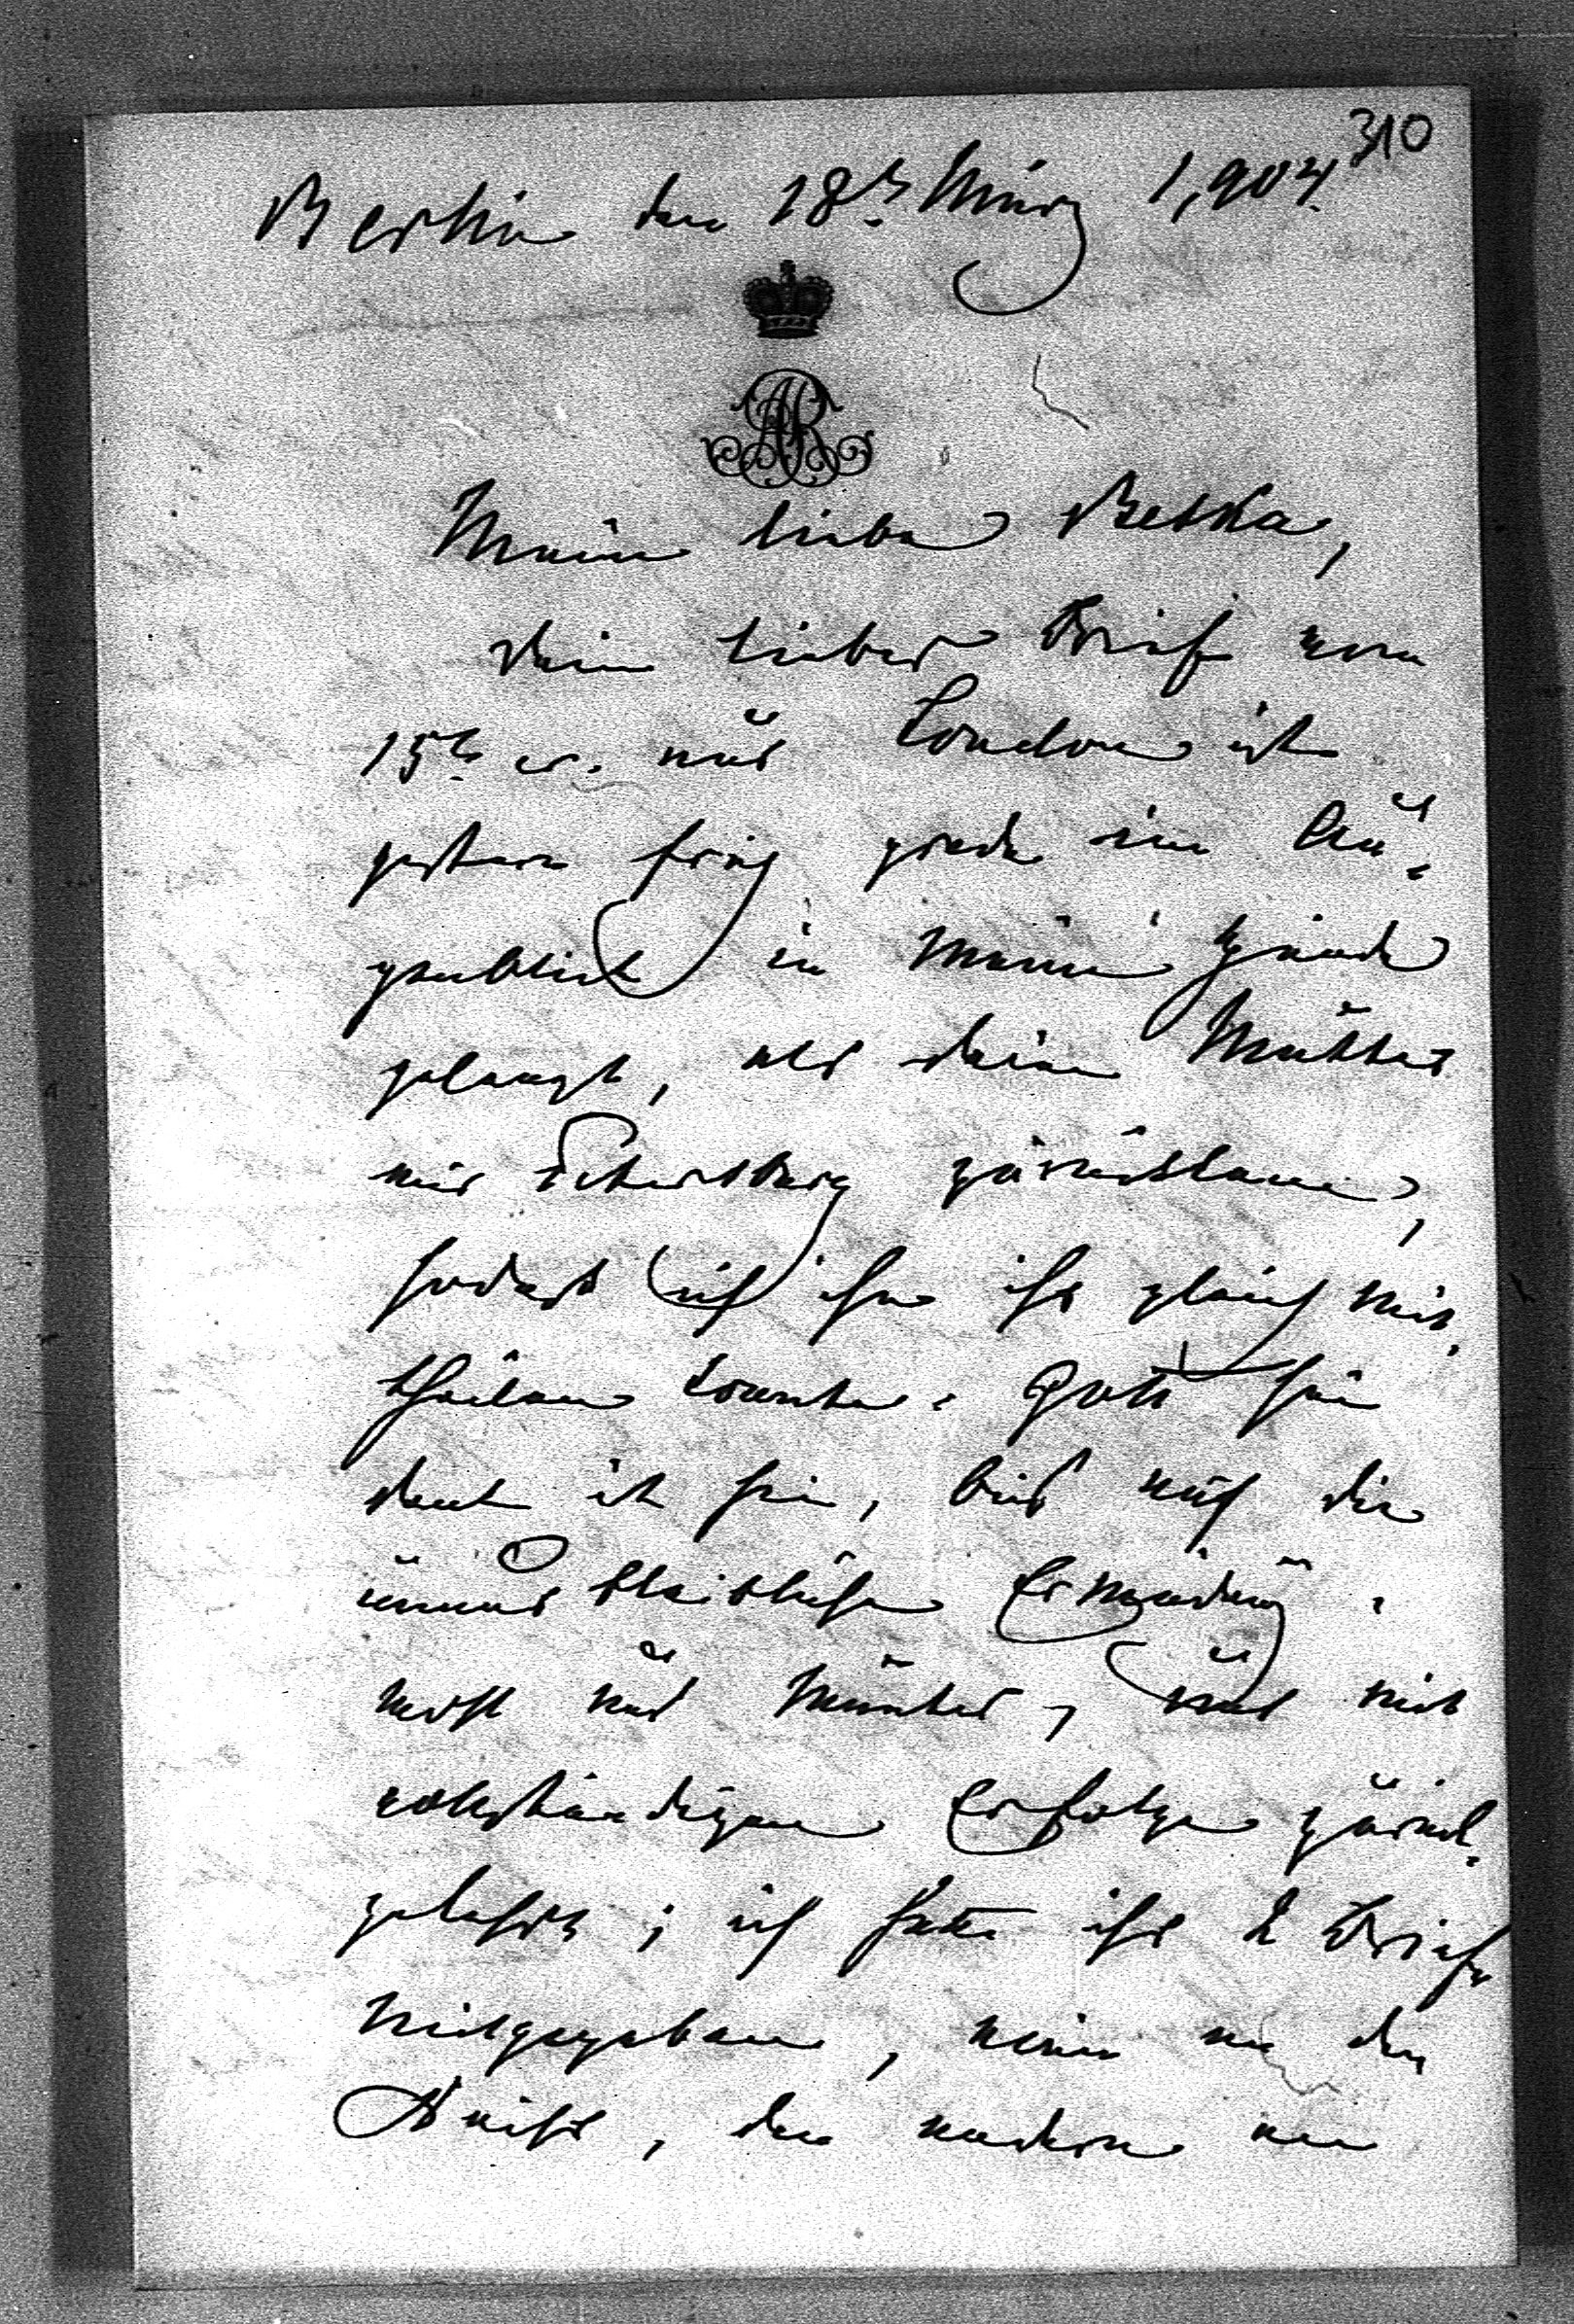 310
Berlin den 18t. März 1,904.
AR
Meine liebe Betka,
Dein lieber Brief vom
15t. cr. aus London ist
gestern früh grade im Au-
genblick in meine Hände
gelangt, als Deine Mutter
aus Petersburg zurückkam,
sodaß ich ihn ihr gleich mit-
theilen konnte. Gott sei
Dank ist sie, bis auf die
unausbleibliche Ermüdung,
wohl und munter, und mit
vollständigem Erfolge zurück-
gekehrt; ich hatte ihr 2 Briefe
mitgegeben, einen an den
Kaiser, den andern an